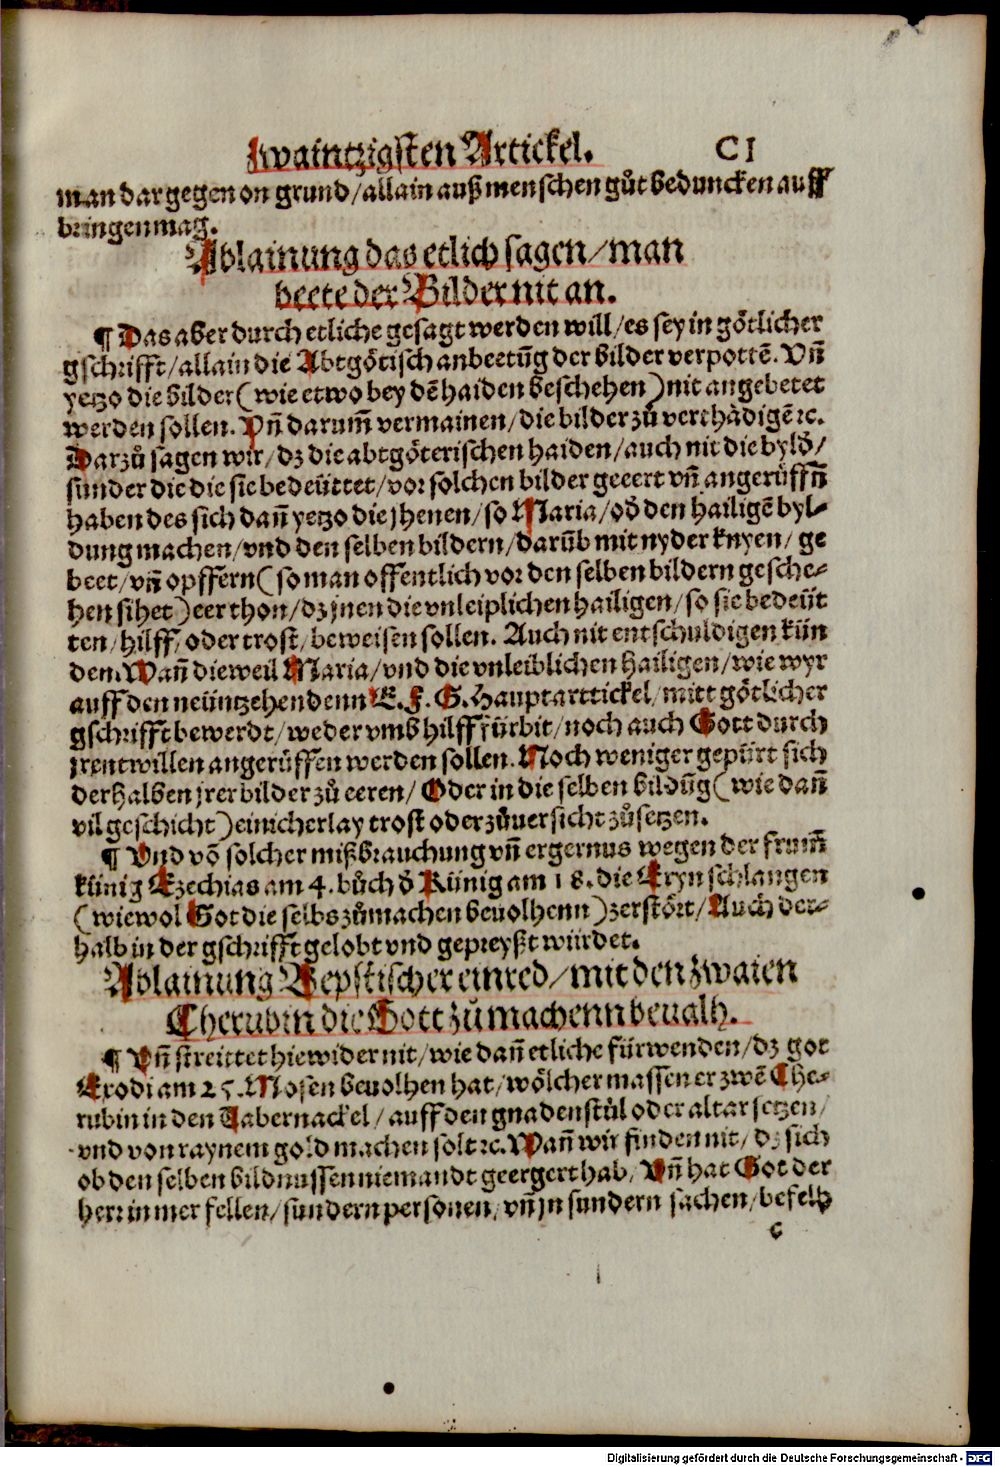 zwaintzigsten Artickel. CI
man dargegen on grund/ allain auß menschen gůt beduncken auff
bringen mag.
Ablainung das etlich sagen/ man
beete der Bilder nit an.
¶ Das aber durch etliche gesagt werden will/ es sey in götlicher
gschrifft/ allain die Abtgötisch anbeetūg der bilder verpottē. Vñ
yetzo die bilder (wie etwo bey dē haiden beschehen) nit angebetet
werden sollen. Vñ darum̃ vermainen/ die bilder zů verthädigē ꝛc.
Darzů sagen wir/ dz die abtgöterischen haiden/ auch nit die byld̕/
sunder die die sie bedeüttet/ vor solchen bilder geeert vñ angerüffñ
haben des sich dañ yetzo die jhenen/ so Maria/ od̕ den hailigē byl-
dung machen/ vnd den selben bildern/ darūb mit nyder knyen/ ge
beet/ vñ opffern (so man offentlich vor den selben bildern gesche-
hen sihet) eer thon/ dz jnen die vnleiplichen hailigen/ so sie bedeüt
ten/ hilff/ oder trost/ beweisen sollen. Auch nit entschuldigen kün
den. Wañ dieweil Maria/ vnd die vnleiblichen hailigen/ wie wyr
auff den neüntzehendenn E. F. G. Hauptarttickel/ mitt götlicher
gschrifft bewerdt/ weder vmb hilff fürbit/ noch auch Gott durch
jrentwillen angerüffen werden sollen. Noch weniger gepürt sich
derhalben jrer bilder zů eeren/ Oder in die selben bildūg (wie dañ
vil geschicht) einicherlay trost oder zůuersicht zůsetzen.
¶ Vnd võ solcher mißbrauchung vñ ergernus wegen der frum̃
künig Ezechias am 4. bůch d̕ Künig am 18. die Eryn schlangen
(wiewol Got die selbs zůmachen beuolhenn) zerstört/ Auch der-
halb in der gschrifft gelobt vnd gepreyßt würdet.
Ablainung Bepstischer einred/ mit den zwaien
Cherubin die Gott zů machenn beualh.
¶ Vñ streittet hiewider nit/ wie dañ etliche fürwenden/ dz got
Exodi am 25. Mosen beuolhen hat/ wölcher massen er zwē Che-
rubin in den Tabernackel/ auff den gnadenstůl oder altar setzen/
vnd von raynem gold machen solt ꝛc. Wañ wir finden nit/ dz sich
ob den selben bildnussen niemandt geergert hab/ Vñ hat Got der
herr in mer fellen/ sundern personen/ vñ jn sundern sachen/ befelh
c
Digitalisierung gefördert durch die Deutsche Forschungsgemeinschaft - DFG